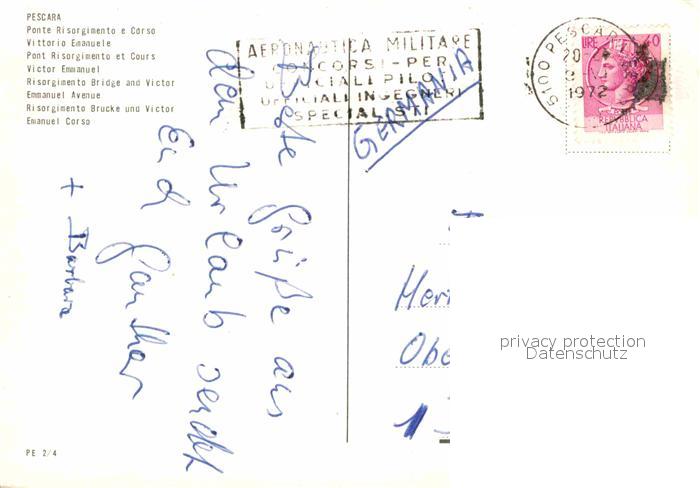 PESCARA
Ponte Risorgimento e Corso
Vittorio Emanuele
Pont Risorgimento et Cours
Victor Emmanuel
Risorgimento Bridge and Victor
Emmanuel Avenue
Risorgimento Brucke und Victor
Emanuel Corso
AERONAUTICA MILITARE
CONCORSI-PER
UFFICIALI PILOTI
UFFICIALI INGEGNERI
SPECIALISTI
65100 PESCARA
20
1972
LIRE 40
REPUBBLICA
ITALIANA
GERMANIA
Beste Grüße aus
dem Urlaub sendet
Euch Günther
+ Barbara
Obe
1-
privacy protection
Datenschutz
PE 2/4